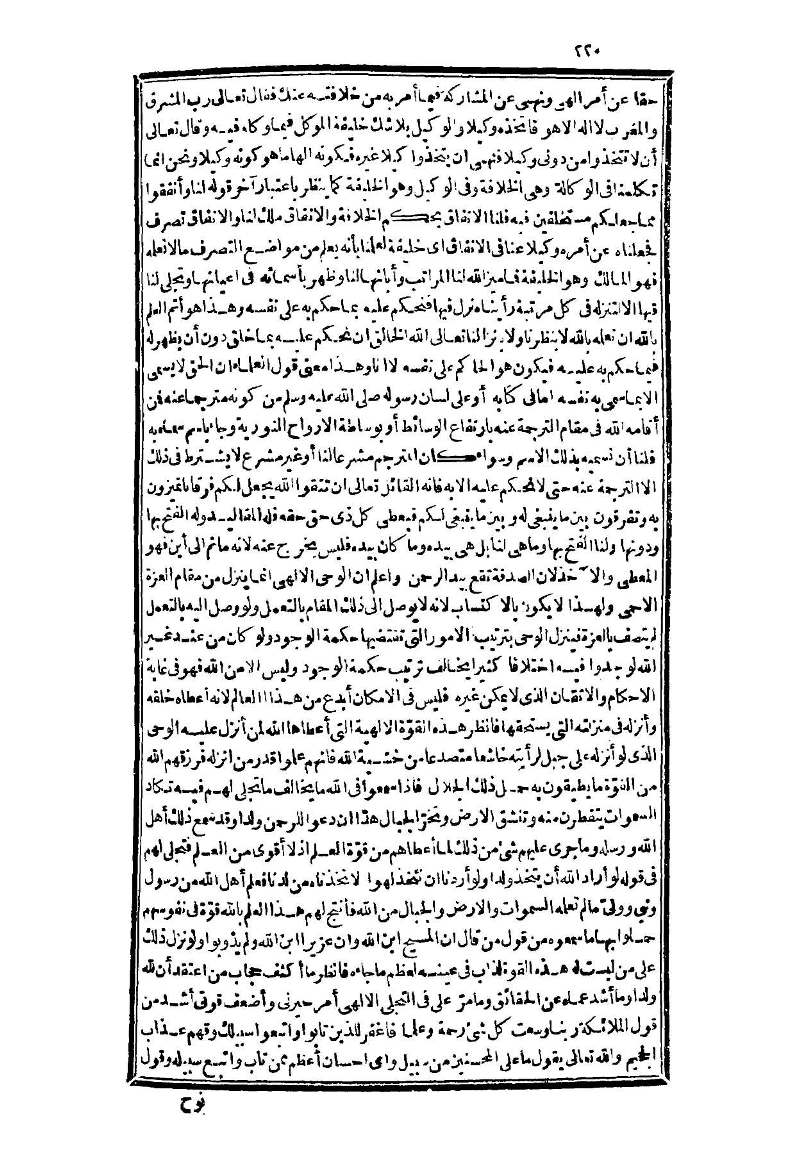 ٢٢٠
حقا عن أمر الهى ونهى عن المشاركة فيما أمر به من خلافته عنك فقال تعالى رب المشرق
والمغرب لا اله الا هو فاتخذه وكيلا والوكيل بلا شك خليفة الموكل فيما وكله فيه وقال تعالى
أن لا تتخذوا من دونى وكيلا فنهى ان يتخذوا كيلا غيره فيكونه الها ما هو كونه وكيلا ونحن انما
تكلمنا فى الوكالة وهى الخلافة وفى الوكيل وهو الخليفة كما ينظر باعتبار آخر قوله لنا وأنفقوا
مما جعلكم مستخلفين فيه فلنا الانفاق بحكم الخلافة والانفاق ملك لنا والانفاق تصرف
فجعلناه عن أمره وكيلا عنا فى الانفاق اى خليفة لعلمنا بأنه يعلم من مواضع التصرف ما لا نعلمه
فهو المالك وهو الخليفة فما ميز الله لنا المراتب وأبانها لنا وظهر بأسمائه فى اعيانها وتجلى لنا
فيها الا لننزله فى كل مرتبة رأيناه نزل فيها فنحكم عليه بما حكم به على نفسه وهذا هو أتم العلم
بالله ان نعلمه بالله لا بنظرنا ولا بنزالنا تعالى الله الخالق ان نحكم عليه بما خلق دون أن يظهر له
فيما حكم به عليه فيكون هو الحاكم على نفسه لا انا وهذا معنى قول العلماء ان الحق لا يسمى
الا بما سمى به نفسه اما فى كتابه أو على لسان رسوله صلى الله عليه وسلم من كونه مترجما عنه فمن
أقامه الله فى مقام الترجمة عنه بارتفاع الوسائط أو بوساطة الارواح النورية وجاء باسم سماه به
فلنا أن نسميه بذلك الاسم وسواء كان المترجم مشرعا لنا أو غير مشرع لا يشترط فى ذلك
الا الترجمة عنه حتى لا نحكم عليه الا به فانه القائل تعالى ان تتقوا الله يجعل لكم فرقانا تميزون
به وتفرقون بين ما ينبغى له وبين ما ينبغى لكم فيعطى كل ذى حق حقه فله المقاليد وله الفتح بها
ودونها ولنا الفتح بها وما هى لنا بل هى بيده وما كان بيده فليس يخرج عنه لانه ما ثم الى أين فهو
المعطى والآخذ لان الصدقة تقع بيد الرحمن واعلم ان الوحى الالهى انما ينزل من مقام العزة
الاحمى ولهذا لا يكون بالاكتساب لانه لا يوصل الى ذلك المقام بالتعمل ولو وصل اليه بالتعمل
لم يتصف بالعزة فينزل الوحى بترتيب الامور التى تقتضيها حكمة الوجود ولو كان من عند غير
الله لوجدوا فيه اختلافا كثيرا يخالف ترتيب حكمة الوجود وليس الا من الله فهو فى غاية
الاحكام والاتقان الذى لا يمكن غيره فليس فى الامكان أبدع من هذا العالم لانه أعطاه خلقه
وأنزله فى منزلته التى يستحقها فانظر هذه القوة الالهية التى أعطاها الله لمن أنزل عليه الوحى
الذى لو أنزله على جبل لرأيته خاشعا متصدعا من خشية الله فانهم علموا قدر من انزله فرزقهم الله
من القوة ما يطيقون به حمل ذلك الجلال فاذا سمعوا فى الله ما يخالف ما تجلى لهم فيه تكاد
السموات يتفطرن منه وتنشق الارض وتخر الجبال هذا ان دعوا للرحمن ولدا وقد سمع ذلك أهل
الله ورسله وما جرى عليهم شئ من ذلك لما أعطاهم من قوة العلم اذ لا أقوى من العلم فتجلى لهم
فى قوله لو أراد الله أن يتخذ ولدا ولو أردنا ان نتخذ لهوا لاتخذناه من لدنا فعلم أهل الله من رسول
ونبى وولى ما لم تعلمه السموات والارض والجبال من الله فأنتج لهم هذا العلم بالله قوة فى نفوسهم
حملوا بها ما سمعوه من قول من قال ان المسيح ابن الله وان عزيرا ابن الله ولم يذوبوا ولو نزل ذلك
على من ليست له هذه القوة لذاب فى عينه لعظم ما جاءه فانظر ما أكثف حجاب من اعتقد أن لله
ولدا وما أشد عماه عن الحقائق وما مر على فى التجلى الالهى أمر حيرنى وأضعف قوتى أشد من
قول الملائكة ربنا وسعت كل شئ رحمة وعلما فاغفر للذين تابوا واتبعوا سبيلك وقهم عذاب
الجحيم والله تعالى يقول ما على المحسنين من سبيل واى احسان أعظم ممن تاب واتبع سبيله وقول
نوح